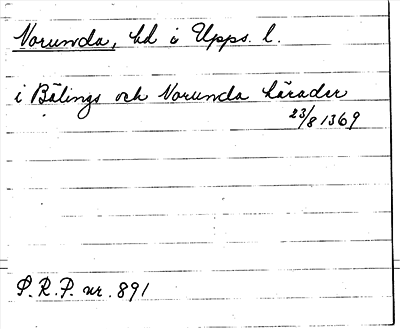 Norunda, hd i Upps. l.
i Bälings och Norunda härader
23/8 1369
S.R.P. nr. 891